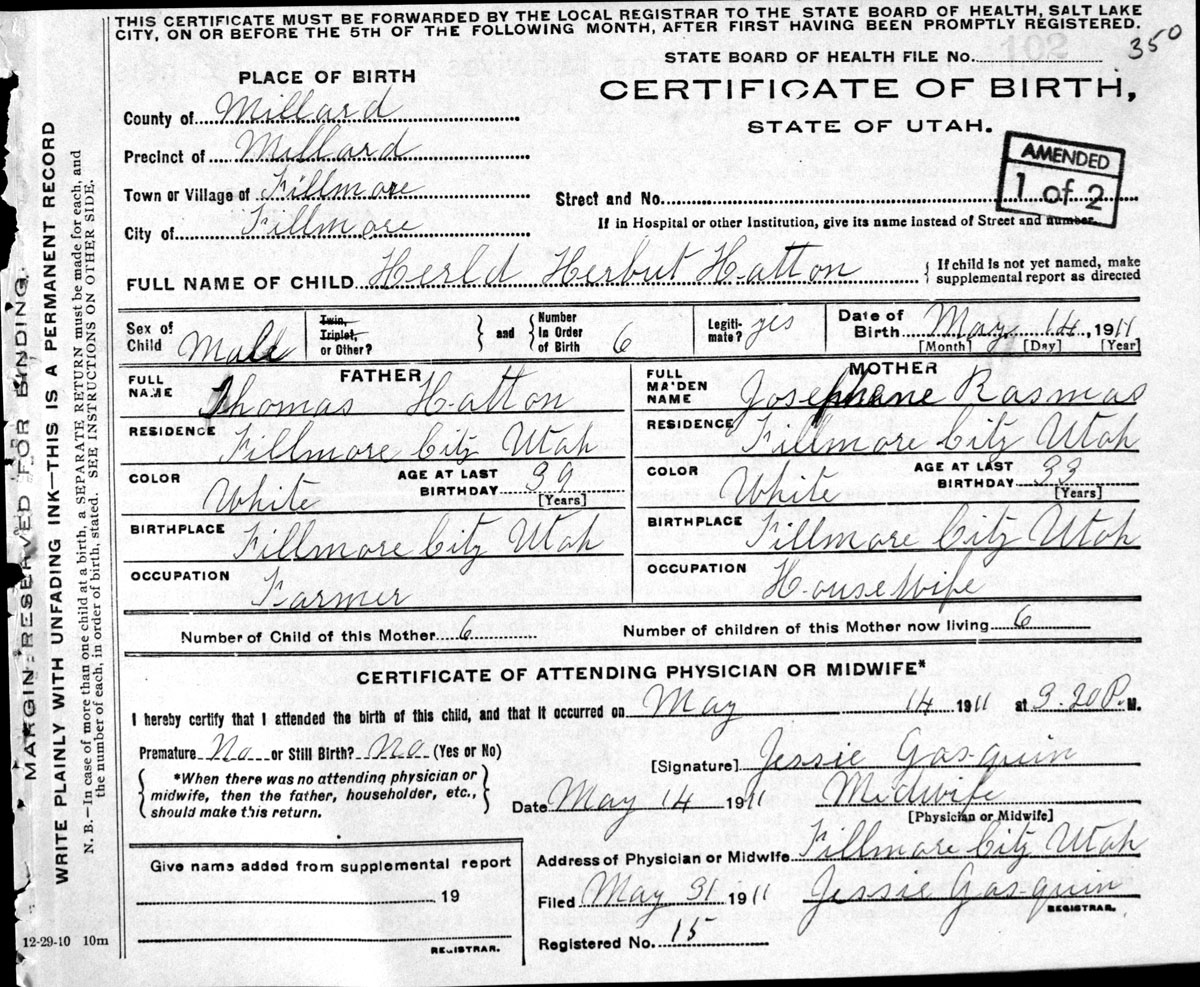 THIS CERTIFICATE MUST BE FORWARDED BY THE LOCAL REGISTRAR TO THE STATE BOARD OF HEALTH, SALT LAKE
CITY, ON OR BEFORE THE 5TH OF THE FOLLOWING MONTH, AFTER FIRST HAVING BEEN PROMPTLY REGISTERED.
350
STATE BOARD OF HEALTH FILE No. 102
PLACE OF BIRTH
CERTIFICATE OF BIRTH,
STATE OF UTAH.
County of Millard
Precinct of Millard
AMENDED
1 of 2
Town or Village of Fillmore
Street and No.
City of Fillmore
If in Hospital or other Institution, give its name instead of Street and number.
FULL NAME OF CHILD Herld Herbut Hatton
If child is not yet named, make
supplemental report as directed
Sex of Child Male
Twin, Triplet, or Other?
and
Number in Order of Birth 6
Legitimate? yes
Date of Birth May 14, 1911
[Month] [Day] [Year]
FATHER
FULL NAME Thomas Hatton
RESIDENCE Fillmore City Utah
COLOR White
AGE AT LAST BIRTHDAY 39
[Years]
BIRTHPLACE Fillmore City Utah
OCCUPATION Farmer
MOTHER
FULL MAIDEN NAME Josephane Rasmas
RESIDENCE Fillmore City Utah
COLOR White
AGE AT LAST BIRTHDAY 33
[Years]
BIRTHPLACE Fillmore City Utah
OCCUPATION House Wife
Number of Child of this Mother 6
Number of children of this Mother now living 6
CERTIFICATE OF ATTENDING PHYSICIAN OR MIDWIFE*
I hereby certify that I attended the birth of this child, and that it occurred on May 14 1911 at 3.20 P. M.
Premature No or Still Birth? No (Yes or No)
*When there was no attending physician or
midwife, then the father, householder, etc.,
should make this return.
[Signature] Jessie Gas-quin
Date May 14 1911 Midwife
[Physician or Midwife]
Address of Physician or Midwife Fillmore City Utah
Filed May 31 1911 Jessie Gas-quin
REGISTRAR.
Registered No. 15
Give name added from supplemental report
19
REGISTRAR.
12-29-10 10m
MARGIN RESERVED FOR BINDING.
WRITE PLAINLY WITH UNFADING INK—THIS IS A PERMANENT RECORD
N. B.—In case of more than one child at a birth, a SEPARATE RETURN must be made for each, and
the number of each, in order of birth, stated. SEE INSTRUCTIONS ON OTHER SIDE.